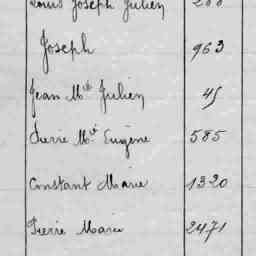 Louis Joseph Julien 288
Joseph 963
Jean Mie Julien 45
Pierre Mie Eugène 585
Constant Marie 1320
Pierre Marie 2471